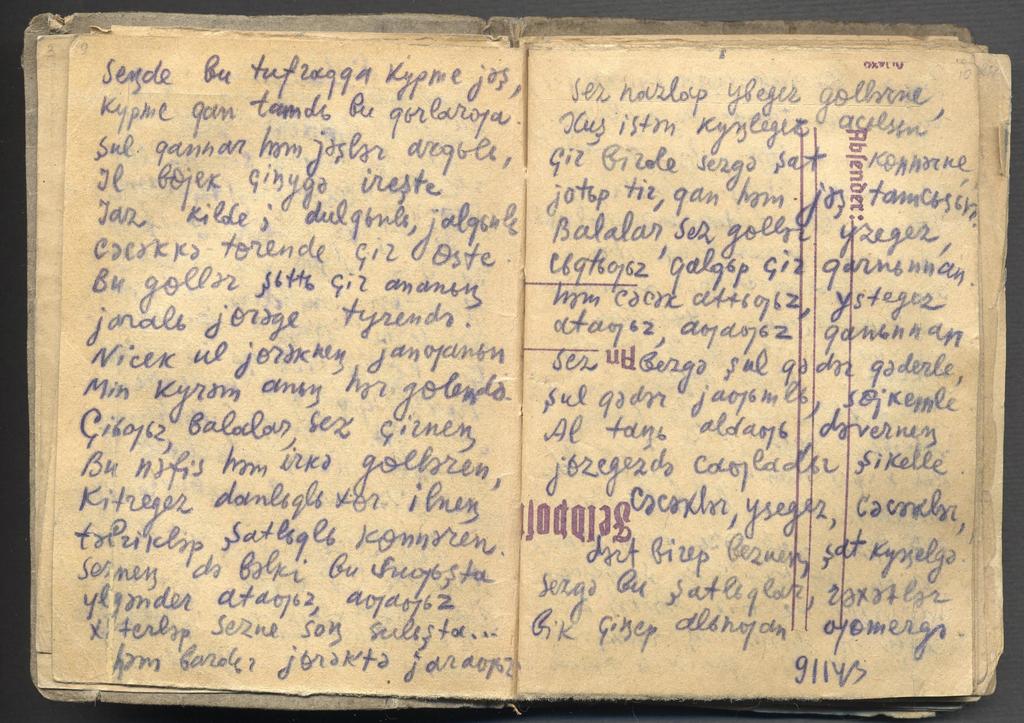 Seŋde bu tufraqqa kypme jəş,
Kypme qan tamdь bu qьrlarƣa.
Şul qannar həm jəşlər arqьlь,
Il bɵjek çiŋyga ireşte
Jaz kilde; dulqьnlь, jalqьnlь
Cəcəkkə tɵrende çir ɵste.
Bu gɵllər şьttь çir ananьŋ
jaralь jɵrəge tyrendə.
Nicek ul jɵrəkneŋ janƣanьn
Min kyrəm anьŋ hər gɵlendə.
Çьjьƣьz, Balalar, sez çirneŋ
Bu nəfis həm irkə gɵllərен,
Kitregez danlьqlь xɵr ilneŋ
təbrikləp şatlьqlь kɵnnəren.
Sezneŋ də bəlki bu suƣьşta
ylgənder ataƣьz, aƣaƣьz
xəterləp sezne soŋ sulьşta...
həm bardьr jɵrəktə jaraƣьz
Sez nazlap ybegez gɵllərne,
Xuş istən kyŋlegez acьlsьn
Çir birde sezgə şat kɵnnərne,
jotьp tir, qan həm jəş tamcьsьn.
Balalar, sez gɵllər yzegez,
Cьqtьƣьz qalqьp çir qarnьnnan.
həm cəcək attьƣьz, ystegez
ataƣьz, aƣaƣьz qanьnnan
Sez bezgə şul qədər qəderle,
şul qədər jaƣьmlь, sɵjkemle
Al taŋь aldaƣь dəverneŋ
jɵzegezdə caƣladьr şikelle
Cəcəklər, ysegez, cəcəklər,
dərt birep bezneŋ şat kyŋelgə.
Sezgə bu şatlьqlar, rəxətlər
Bik çiŋep alьnƣan ƣomergə.
Absender:
An
Feldpos